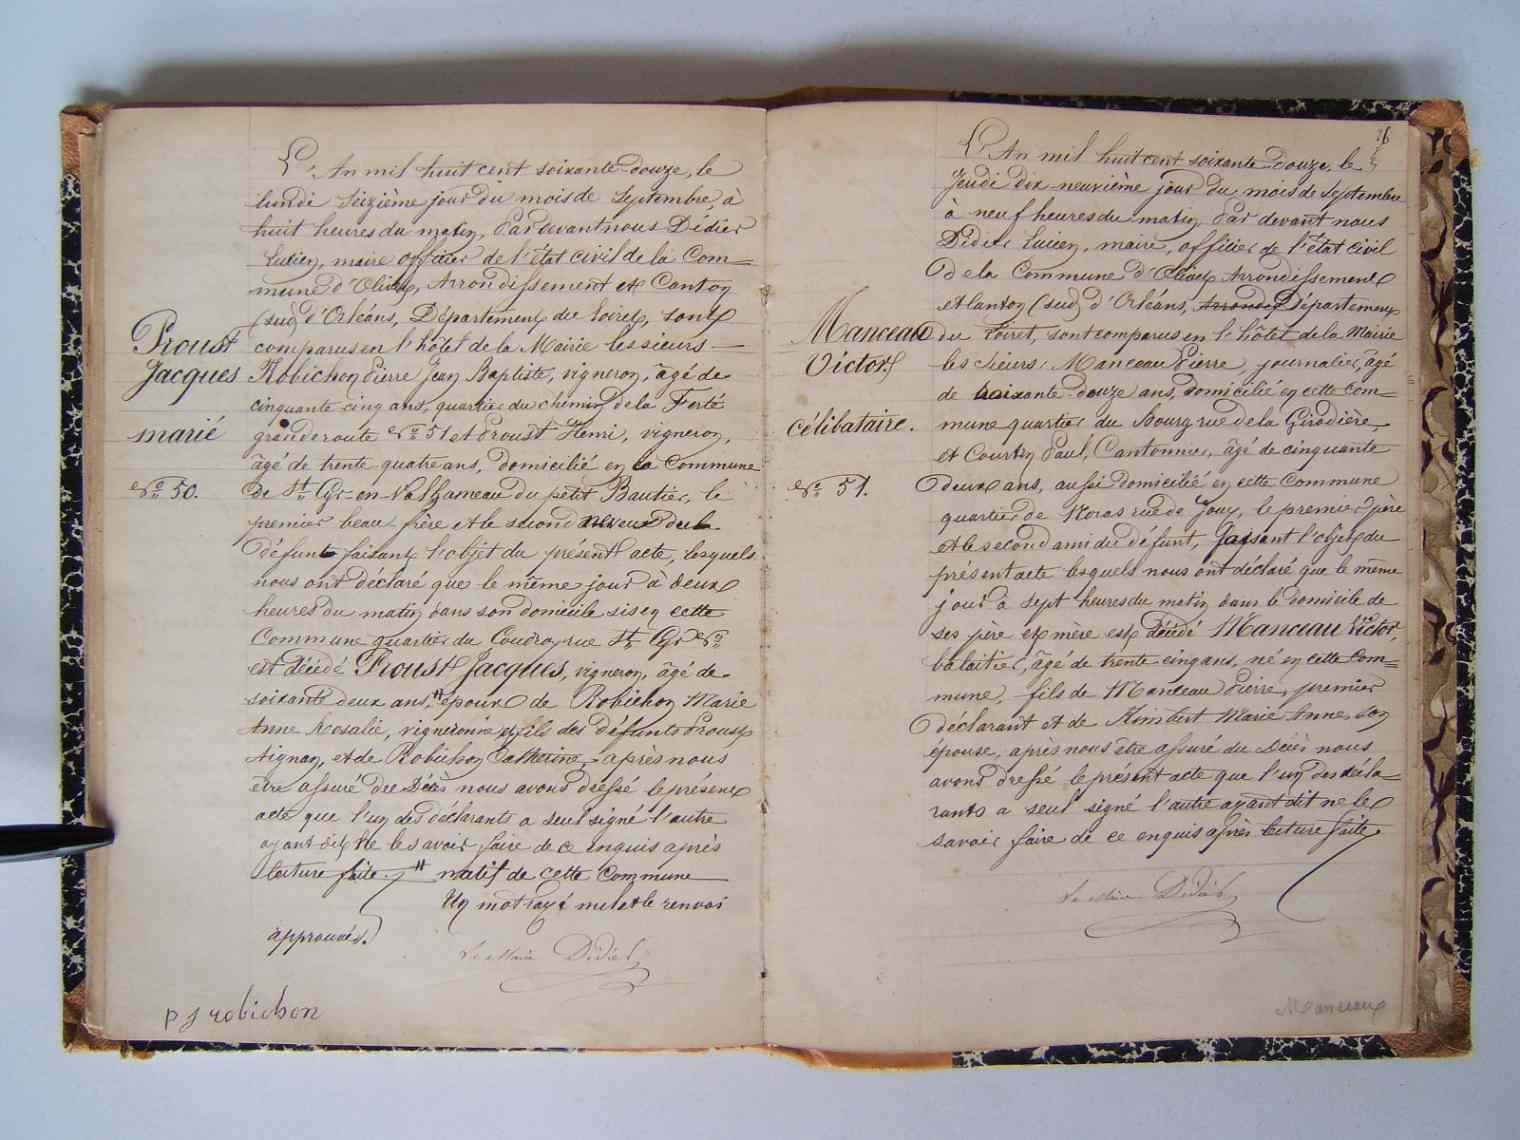 L'An mil huit cent soixante-douze, le
lundi seizième jour du mois de Septembre, à
huit heures du matin, Par devant nous Didier
Lucien, maire officier de l'état civil de la Com=
mune d'Olivet, Arrondissement et Canton
(sud) d'Orléans, Département du Loiret, sont
comparus en l'hôtel de la Mairie les sieurs —
Robichon Pierre Jean Baptiste, vigneron, âgé de
cinquante cinq ans, quartier du chemin de la Ferté
grande route N° 51 et Proust Henri, vigneron,
âgé de trente quatre ans, domicilié en la Commune
de St Cyr-en-Val hameau du petit Bautier, le
premier beau frère et le second neveu du
défunt faisant l'objet du présent acte, lesquels
nous ont déclaré que le même jour à deux
heures du matin dans son domicile sis en cette
Commune quartier du Coudray rue St Cyr N°
est décédé Proust Jacques, vigneron, âgé de
soixante deux ans, # époux de Robichon Marie
Anne Rosalie, vigneronne et fils des défunts Proust
Aignan, et de Robichon Catherine, après nous
être assuré du Décès nous avons dressé le présent
acte que l'un des déclarants a seul signé l'autre
ayant dit ne le savoir faire de ce enquis après
lecture faite. # natif de cette Commune
Un mot rayé nul et le renvoi
approuvés.
Le Maire Didier
p j robichon
Proust
Jacques
marié
N° 50.
76
L'An mil huit cent soixante-douze, le
Jeudi dix-neuvième jour du mois de Septembre
à neuf heures du matin, Par devant nous
Didier Lucien, maire, officier de l'état civil
de la Commune d'Olivet Arrondissement
et Canton (sud) d'Orléans, Arrondisst Département
du Loiret, sont comparus en l'hôtel de la Mairie
les sieurs: Manceau Pierre, journalier, âgé
de soixante-douze ans, domicilié en cette Com=
mune quartier du Bourg rue de la Girodière,
et Courtin Paul, Cantonnier, âgé de cinquante
deux ans, aussi domicilié en cette Commune
quartier de Noras rue de Jouy, le premier père
et le second ami du défunt, faisant l'objet du
présent acte lesquels nous ont déclaré que le même
jour à sept heures du matin dans le domicile de
ses père et mère est décédé Manceau Victor,
balaitier, âgé de trente cinq ans, né en cette Com=
mune, fils de Manceau Pierre, premier
déclarant et de Rimbert Marie Anne, son
épouse, après nous être assuré du Décès nous
avons dressé le présent acte que l'un des décla=
rants a seul signé l'autre ayant dit ne le
savoir faire de ce enquis après lecture faite
Le Maire Didier
Manceau
Manceau
Victor
célibataire.
N° 51.